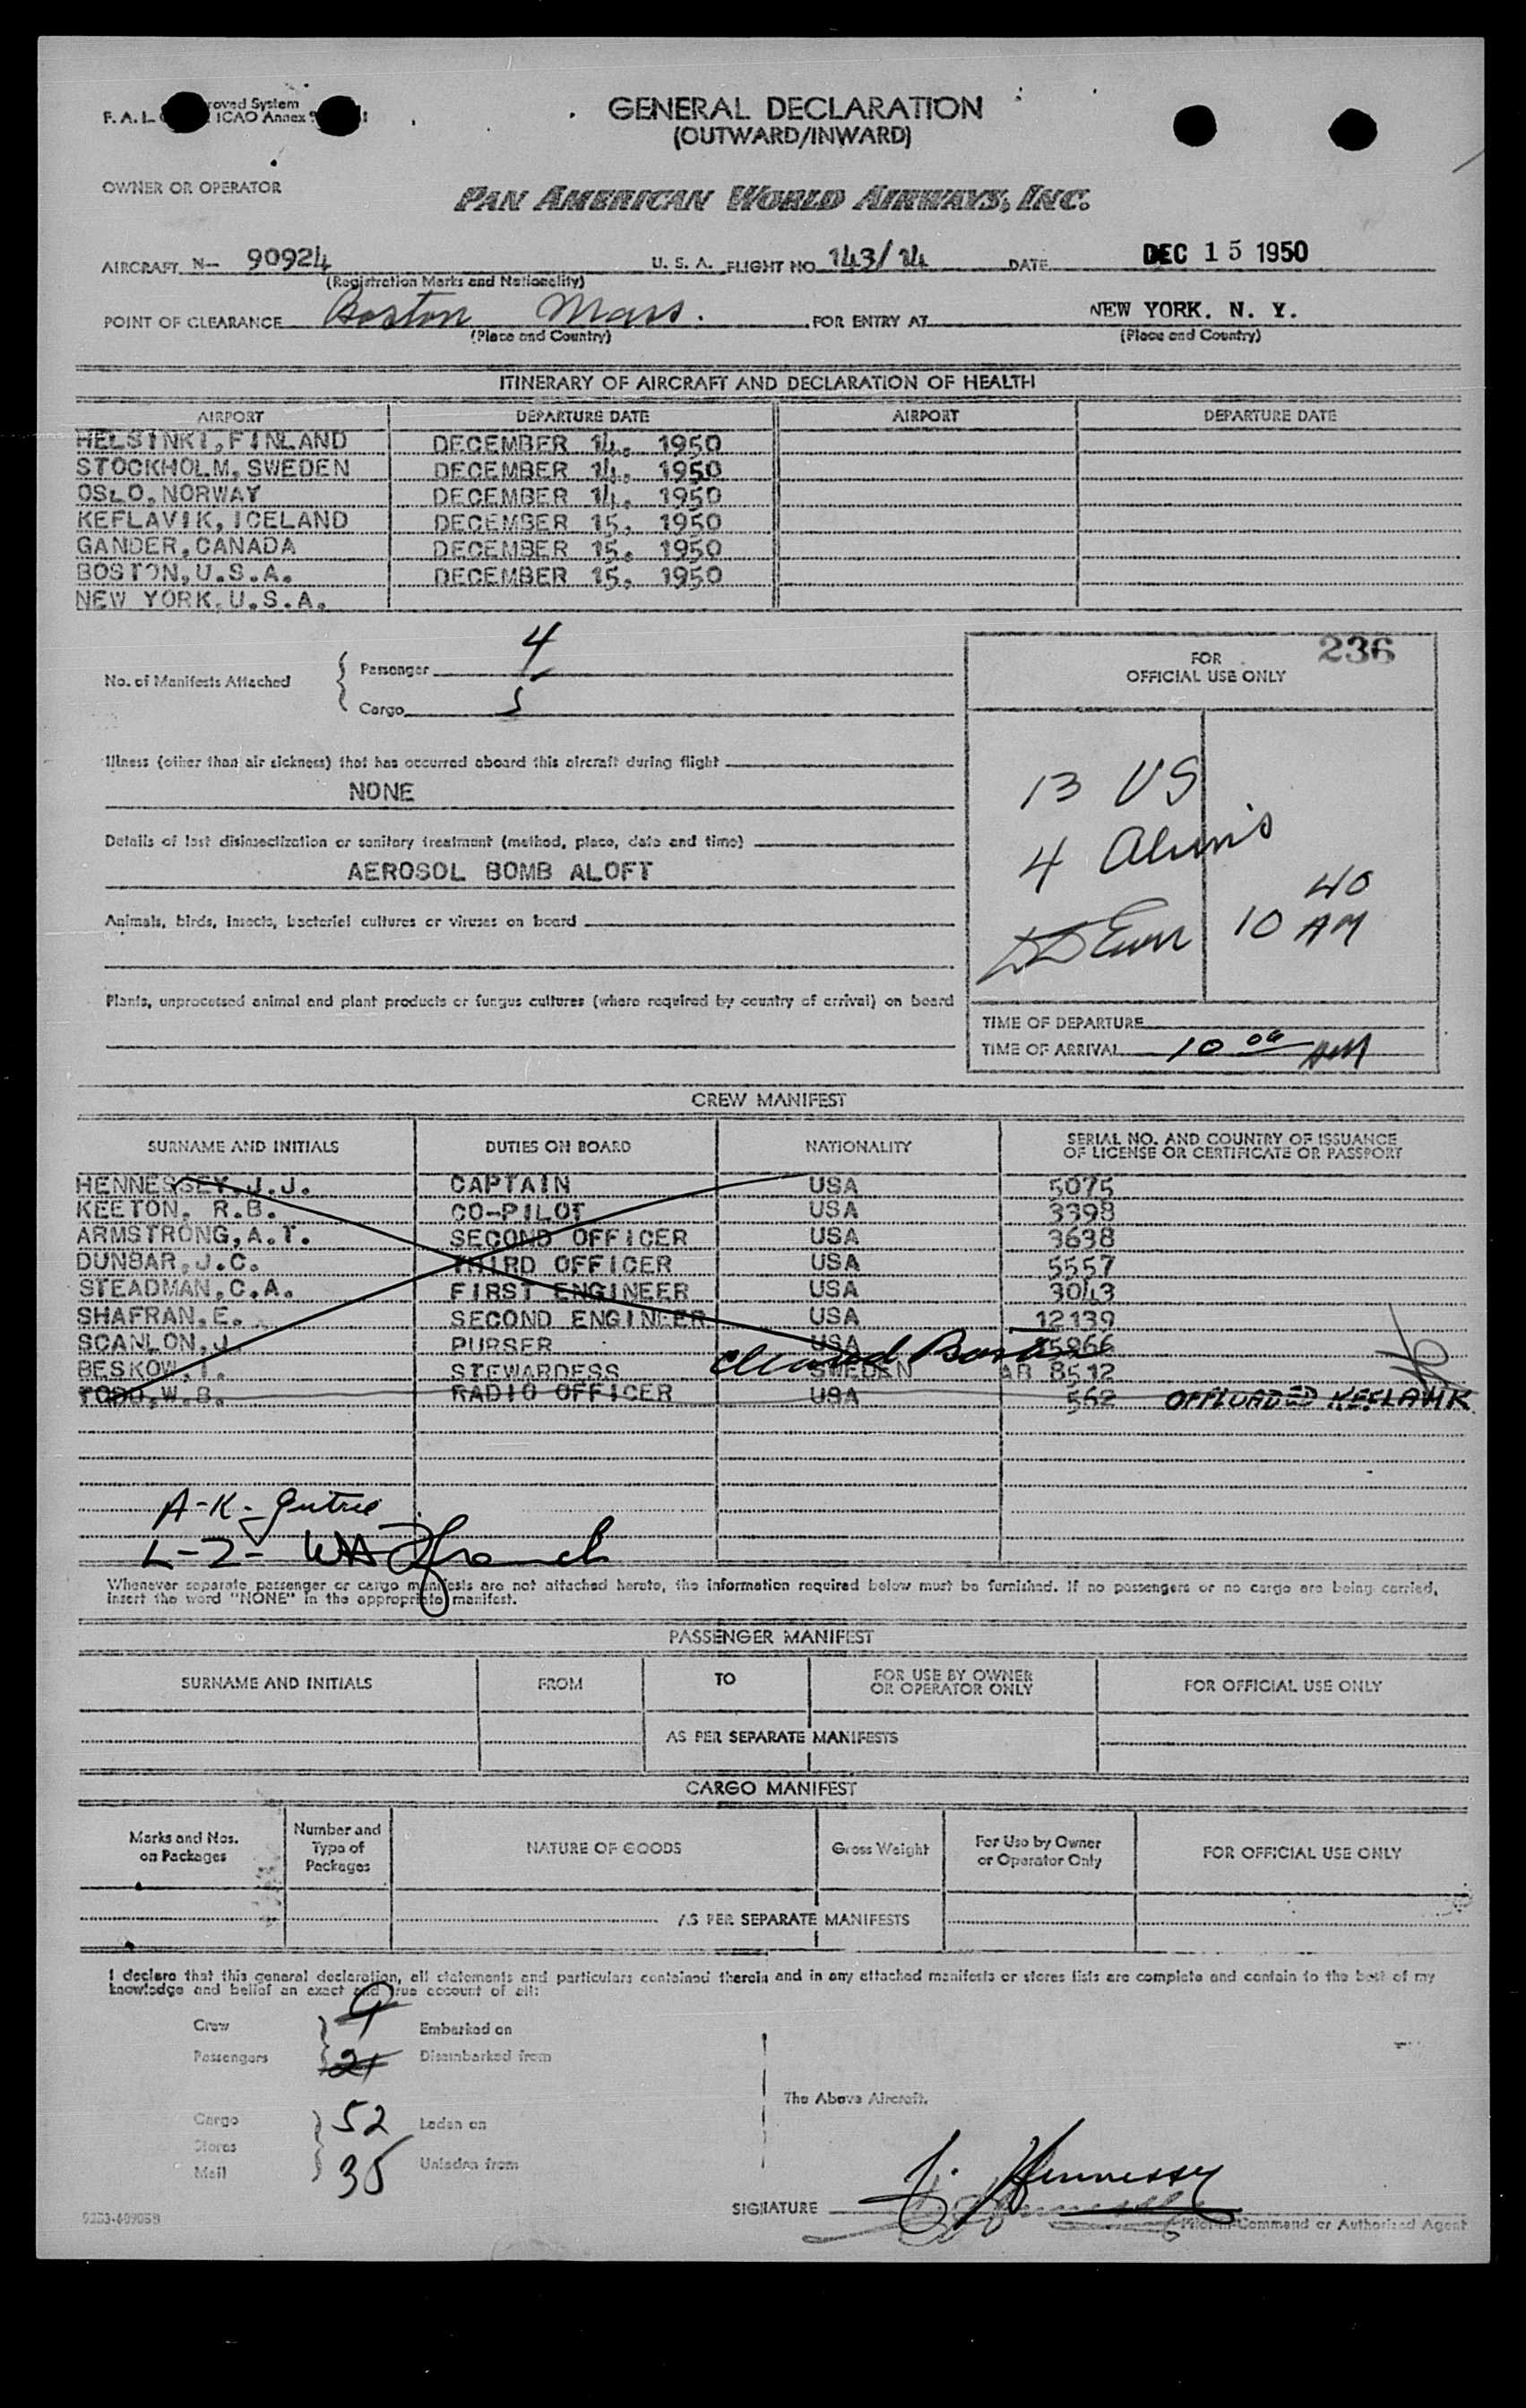 F. A. L. roved System
ICAO Annex 9
GENERAL DECLARATION
(OUTWARD/INWARD)
OWNER OR OPERATOR
PAN AMERICAN WORLD AIRWAYS, INC.
AIRCRAFT N- 90924 U. S. A. FLIGHT NO. 143/14 DATE DEC 15 1950
(Registration Marks and Nationality)
POINT OF CLEARANCE Boston Mass. FOR ENTRY AT NEW YORK. N. Y.
(Place and Country) (Place and Country)
ITINERARY OF AIRCRAFT AND DECLARATION OF HEALTH
AIRPORT DEPARTURE DATE AIRPORT DEPARTURE DATE
HELSINKI, FINLAND DECEMBER 14, 1950
STOCKHOLM, SWEDEN DECEMBER 14, 1950
OSLO, NORWAY DECEMBER 14, 1950
KEFLAVIK, ICELAND DECEMBER 15, 1950
GANDER, CANADA DECEMBER 15, 1950
BOSTON, U.S.A. DECEMBER 15, 1950
NEW YORK, U.S.A.
No. of Manifests Attached
Passenger 4
Cargo 5
FOR 236
OFFICIAL USE ONLY
13 US
4 Aliens
10 40 AM
TIME OF DEPARTURE
TIME OF ARRIVAL 10 06 AM
Illness (other than air sickness) that has occurred aboard this aircraft during flight
NONE
Details of last disinsectization or sanitary treatment (method, place, date and time)
AEROSOL BOMB ALOFT
Animals, birds, insects, bacterial cultures or viruses on board
Plants, unprocessed animal and plant products or fungus cultures (where required by country of arrival) on board
CREW MANIFEST
SURNAME AND INITIALS DUTIES ON BOARD NATIONALITY SERIAL NO. AND COUNTRY OF ISSUANCE
OF LICENSE OR CERTIFICATE OR PASSPORT
HENNESSEY, J.J. CAPTAIN USA 5075
KEETON, R.B. CO-PILOT USA 3398
ARMSTRONG, A.T. SECOND OFFICER USA 3638
DUNBAR, J.C. THIRD OFFICER USA 5557
STEADMAN, C.A. FIRST ENGINEER USA 3043
SHAFRAN, E. SECOND ENGINEER USA 12139
SCANLON, J. PURSER USA 35966
Cleared Boston
BESKOW, I. STEWARDESS SWEDEN AB 8512
TODD, W.B. RADIO OFFICER USA 562 OFFLOADED KEFLAVIK
A-K-
L-Z-
Whenever separate passenger or cargo manifests are not attached hereto, the information required below must be furnished. If no passengers or no cargo are being carried,
insert the word "NONE" in the appropriate manifest.
PASSENGER MANIFEST
SURNAME AND INITIALS FROM TO FOR USE BY OWNER
OR OPERATOR ONLY FOR OFFICIAL USE ONLY
AS PER SEPARATE MANIFESTS
CARGO MANIFEST
Marks and Nos.
on Packages Number and
Type of
Packages NATURE OF GOODS Gross Weight For Use by Owner
or Operator Only FOR OFFICIAL USE ONLY
AS PER SEPARATE MANIFESTS
I declare that this general declaration, all statements and particulars contained therein and in any attached manifests or stores lists are complete and contain to the best of my
knowledge and belief an exact and true account of all:
Crew 9 Embarked on
Passengers 21 Disembarked from
The Above Aircraft.
Cargo 52 Laden on
Stores
Mail 35 Unladen from
SIGNATURE J. Hennessy
Pilot-in-Command or Authorized Agent